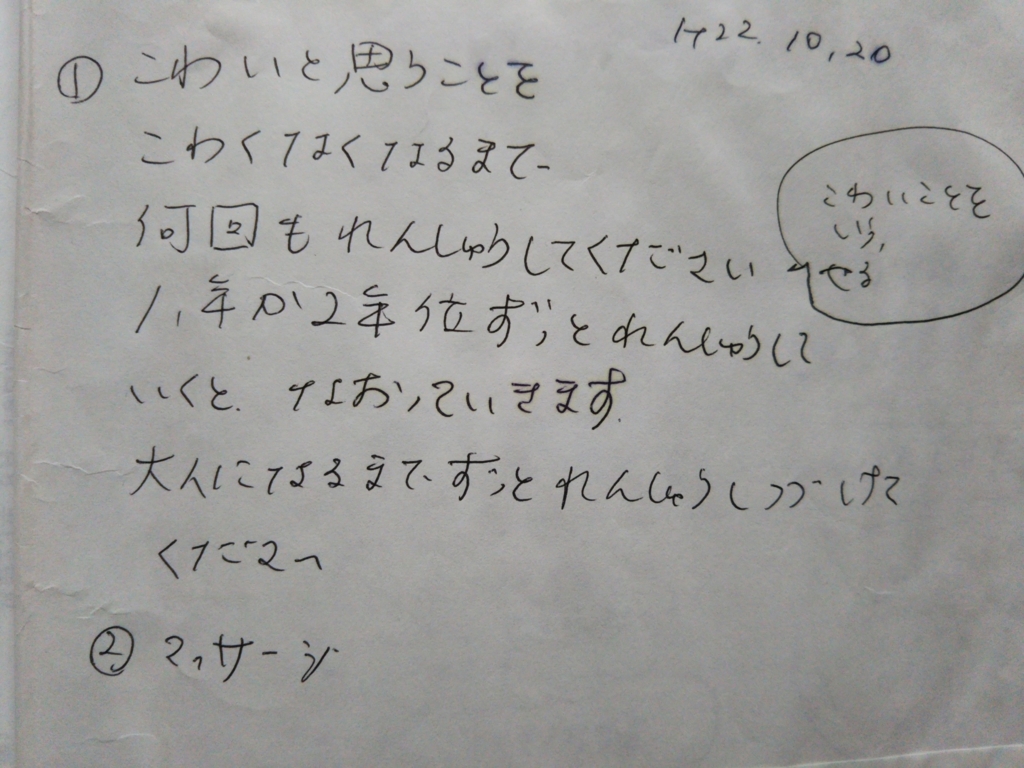 H22.10,20
① こわいと思うことを
こわくなくなるまで
何回もれんしゅうしてください
1、年か2年位ずっとれんしゅうして
いくと、なおっていきます。
大人になるまで、ずっとれんしゅうしつづけて
ください
こわいことを
せる
② マッサージ